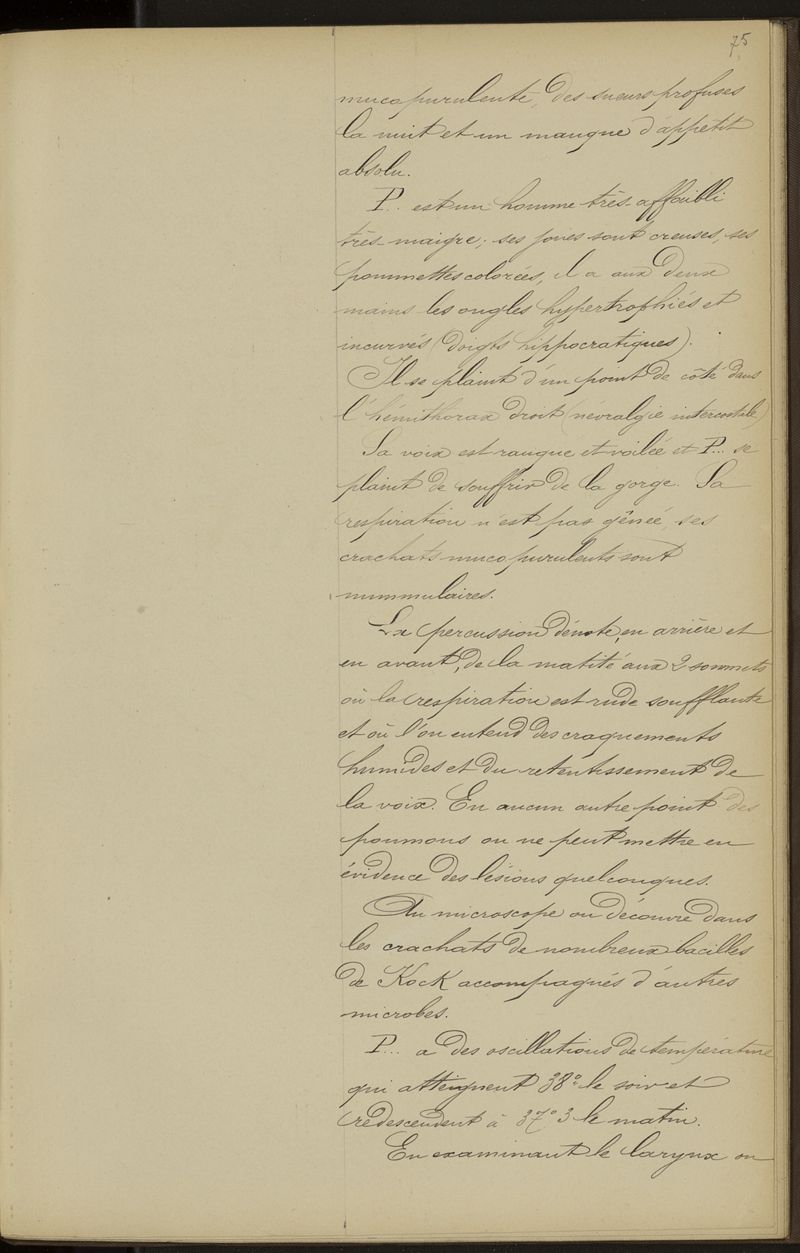 75
mucopurulente, des sueurs profuses
la nuit et un manque d'appétit
absolu.
P... est un homme très affaibli
très maigre; ses joues sont creuses, ses
pommettes colorées, il a aux deux
mains les ongles hypertrophiés et
incurvés (doigts hippocratiques).
Il se plaint d'un point de côté dans
l'hémithorax droit (névralgie intercostale)
Sa voix est rauque et voilée et P... se
plaint de souffrir de la gorge. Sa
respiration n'est pas gênée, ses
crachats mucopurulents sont
nummulaires.
La percussion dénote, en arrière et
en avant, de la matité aux 2 sommets
où la respiration est rude soufflante
et où l'on entend des craquements
humides et du retentissement de
la voix. En aucun autre point des
poumons on ne peut mettre en
évidence des lésions quelconques.
Au microscope on découvre dans
les crachats de nombreux bacilles
de Kock accompagnés d'autres
microbes.
P... a des oscillations de température
qui atteignent 38° le soir et
redescendent à 37°3 le matin.
En examinant le larynx on